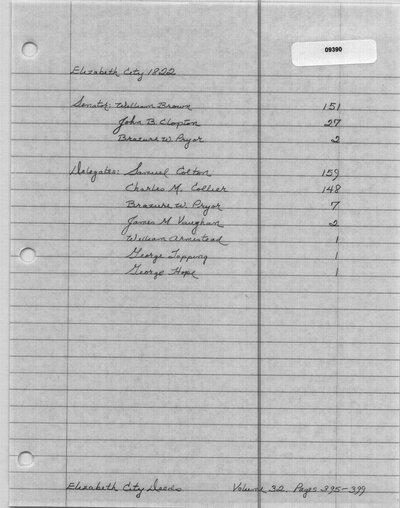 09390
Elizabeth City 1822
Senator: William Brown 151
John B. Clopton 27
Brazure W. Pryor 2
Delegates: Samuel Colton 159
Charles M. Collier 148
Brazure W. Pryor 7
James M Vaughan 2
William Armestead 1
George Topping 1
George Hope 1
Elizabeth City Deeds Volume 32. Pages 395-399